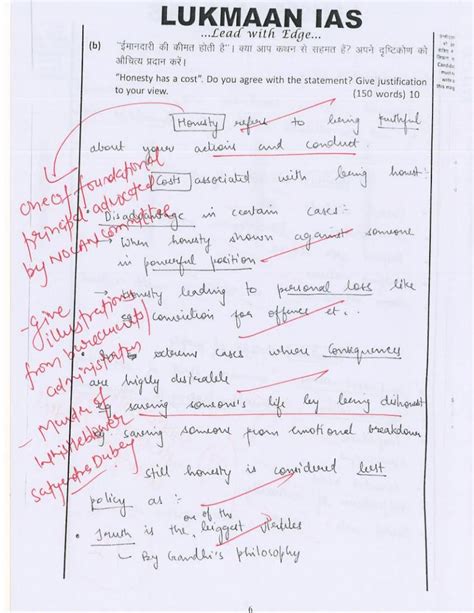 LUKMAAN IAS
...Lead with Edge...
(b) "ईमानदारी की कीमत होती है"। क्या आप कथन से सहमत हैं? अपने दृष्टिकोण को
औचित्य प्रदान करें।
"Honesty has a cost". Do you agree with the statement? Give justification
to your view. (150 words) 10
Honesty refers to being truthful
about your actions and conduct.
Costs associated with being honest:-
• Disadvantage in certain cases:-
→ When honesty shown against someone
in powerful position
→ Honesty leading to personal loss like
conviction for offence et..
extreme cases where consequences
are highly desirable
eg saving someone's life by being dishonest
eg saving someone from emotional breakdown
Still honesty is considered best
policy as :-
one of the
• Truth is the biggest virtues
- By Gandhi's philosophy
one of foundational
principal advocated
by NOLAN committee
- give
illustration
from bureaucrats/
administrators
- Murder of
whistleblower
Satyendra Dubey
6